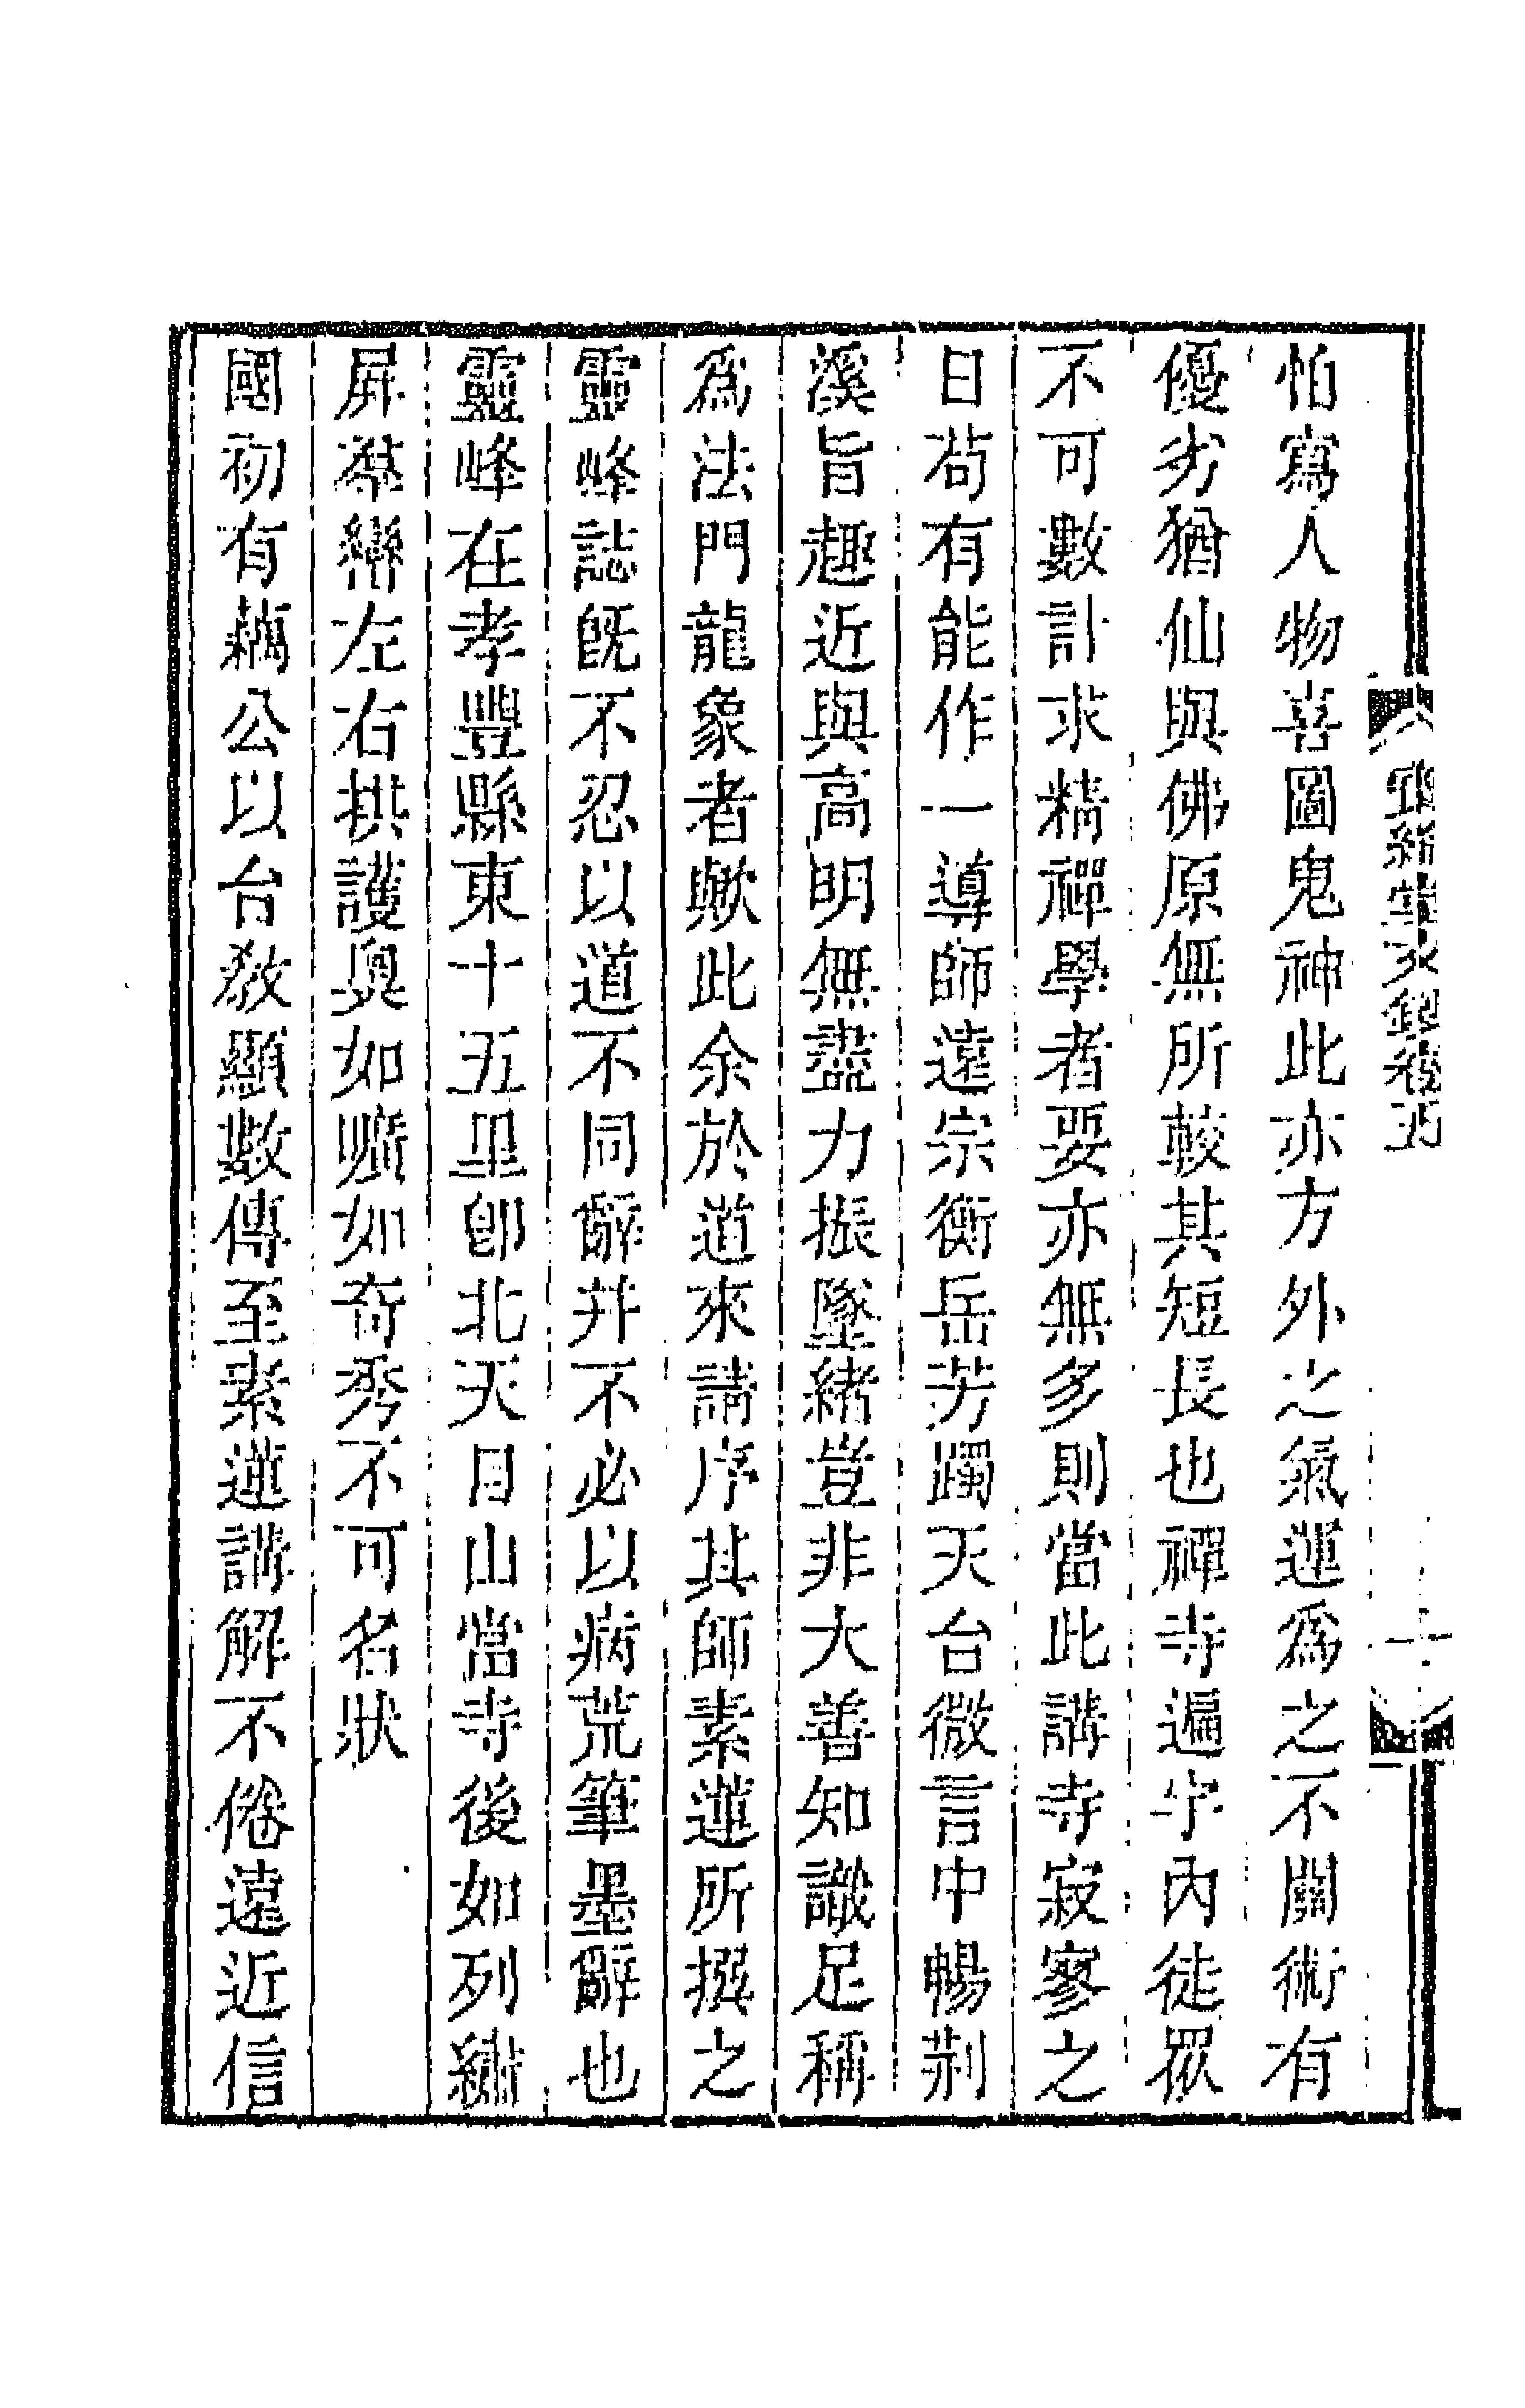 怕寫人物喜圖鬼神此亦方外之氣運爲之不關術有
優劣猶仙與佛原無所較其短長也禪寺遍宇內徒眾
不可數計求精禪學者要亦無多則當此講寺寂寥之
日苟有能作一導師遠宗衡岳芳躅天台微言中暢荆
溪旨趣近與高明無盡力振墜緒豈非大善知識足稱
爲法門龍象者歟此余於道來請序其師素蓮所撰之
靈峰誌旣不忍以道不同辭幷不必以病荒筆墨辭也
靈峰在孝豐縣東十五里卽北天目山當寺後如列繡
屏群巒左右拱護奧如曠如奇秀不可名狀
國初有藕公以台敎顯數傳至素蓮講解不倦遠近信
筆次錄卷五